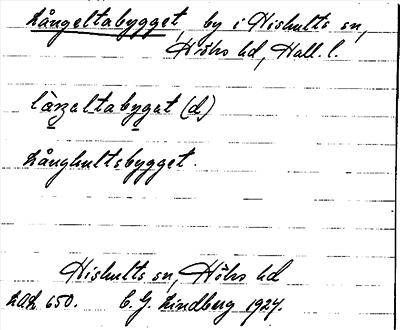 Långeltabygget, by i Hishults sn,
Höks hd, Hall. l.
làŋeltabyget (d)
Långhultsbygget.
Hishults sn, Höks hd
LAL 650. C. G. Lindberg 1927.